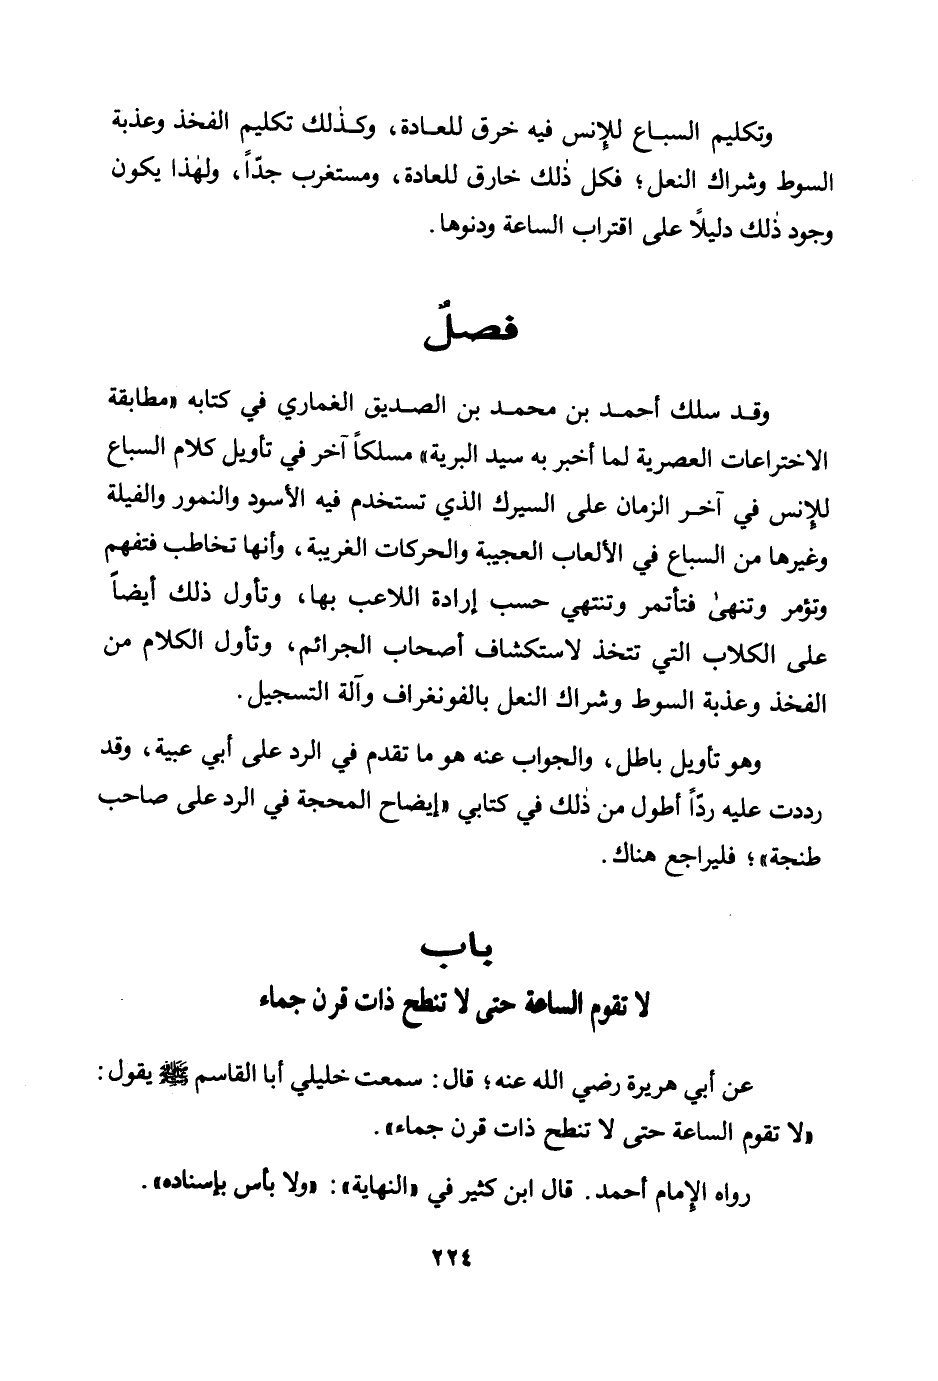 وتكليم السباع للإنس فيه خرق للعادة، وكذٰلك تكليم الفخذ وعذبة
السوط وشراك النعل؛ فكل ذٰلك خارق للعادة، ومستغرب جدّاً، ولهٰذا يكون
وجود ذٰلك دليلاً على اقتراب الساعة ودنوها.
فصلٌ
وقد سلك أحمد بن محمد بن الصديق الغماري في كتابه «مطابقة
الاختراعات العصرية لما أخبر به سيد البرية» مسلكاً آخر في تأويل كلام السباع
للإنس في آخر الزمان على السيرك الذي تستخدم فيه الأسود والنمور والفيلة
وغيرها من السباع في الألعاب العجيبة والحركات الغريبة، وأنها تخاطب فتفهم
وتؤمر وتنهىٰ فتأتمر وتنتهي حسب إرادة اللاعب بها، وتأول ذلك أيضاً
على الكلاب التي تتخذ لاستكشاف أصحاب الجرائم، وتأول الكلام من
الفخذ وعذبة السوط وشراك النعل بالفونغراف وآلة التسجيل.
وهو تأويل باطل، والجواب عنه هو ما تقدم في الرد على أبي عبية، وقد
رددت عليه ردّاً أطول من ذٰلك في كتابي «إيضاح المحجة في الرد على صاحب
طنجة»؛ فليراجع هناك.
باب
لا تقوم الساعة حتى لا تنطح ذات قرن جماء
عن أبي هريرة رضي الله عنه؛ قال: سمعت خليلي أبا القاسم ﷺ يقول:
«لا تقوم الساعة حتى لا تنطح ذات قرن جماء».
رواه الإمام أحمد. قال ابن كثير في «النهاية»: «ولا بأس بإسناده».
٢٢٤